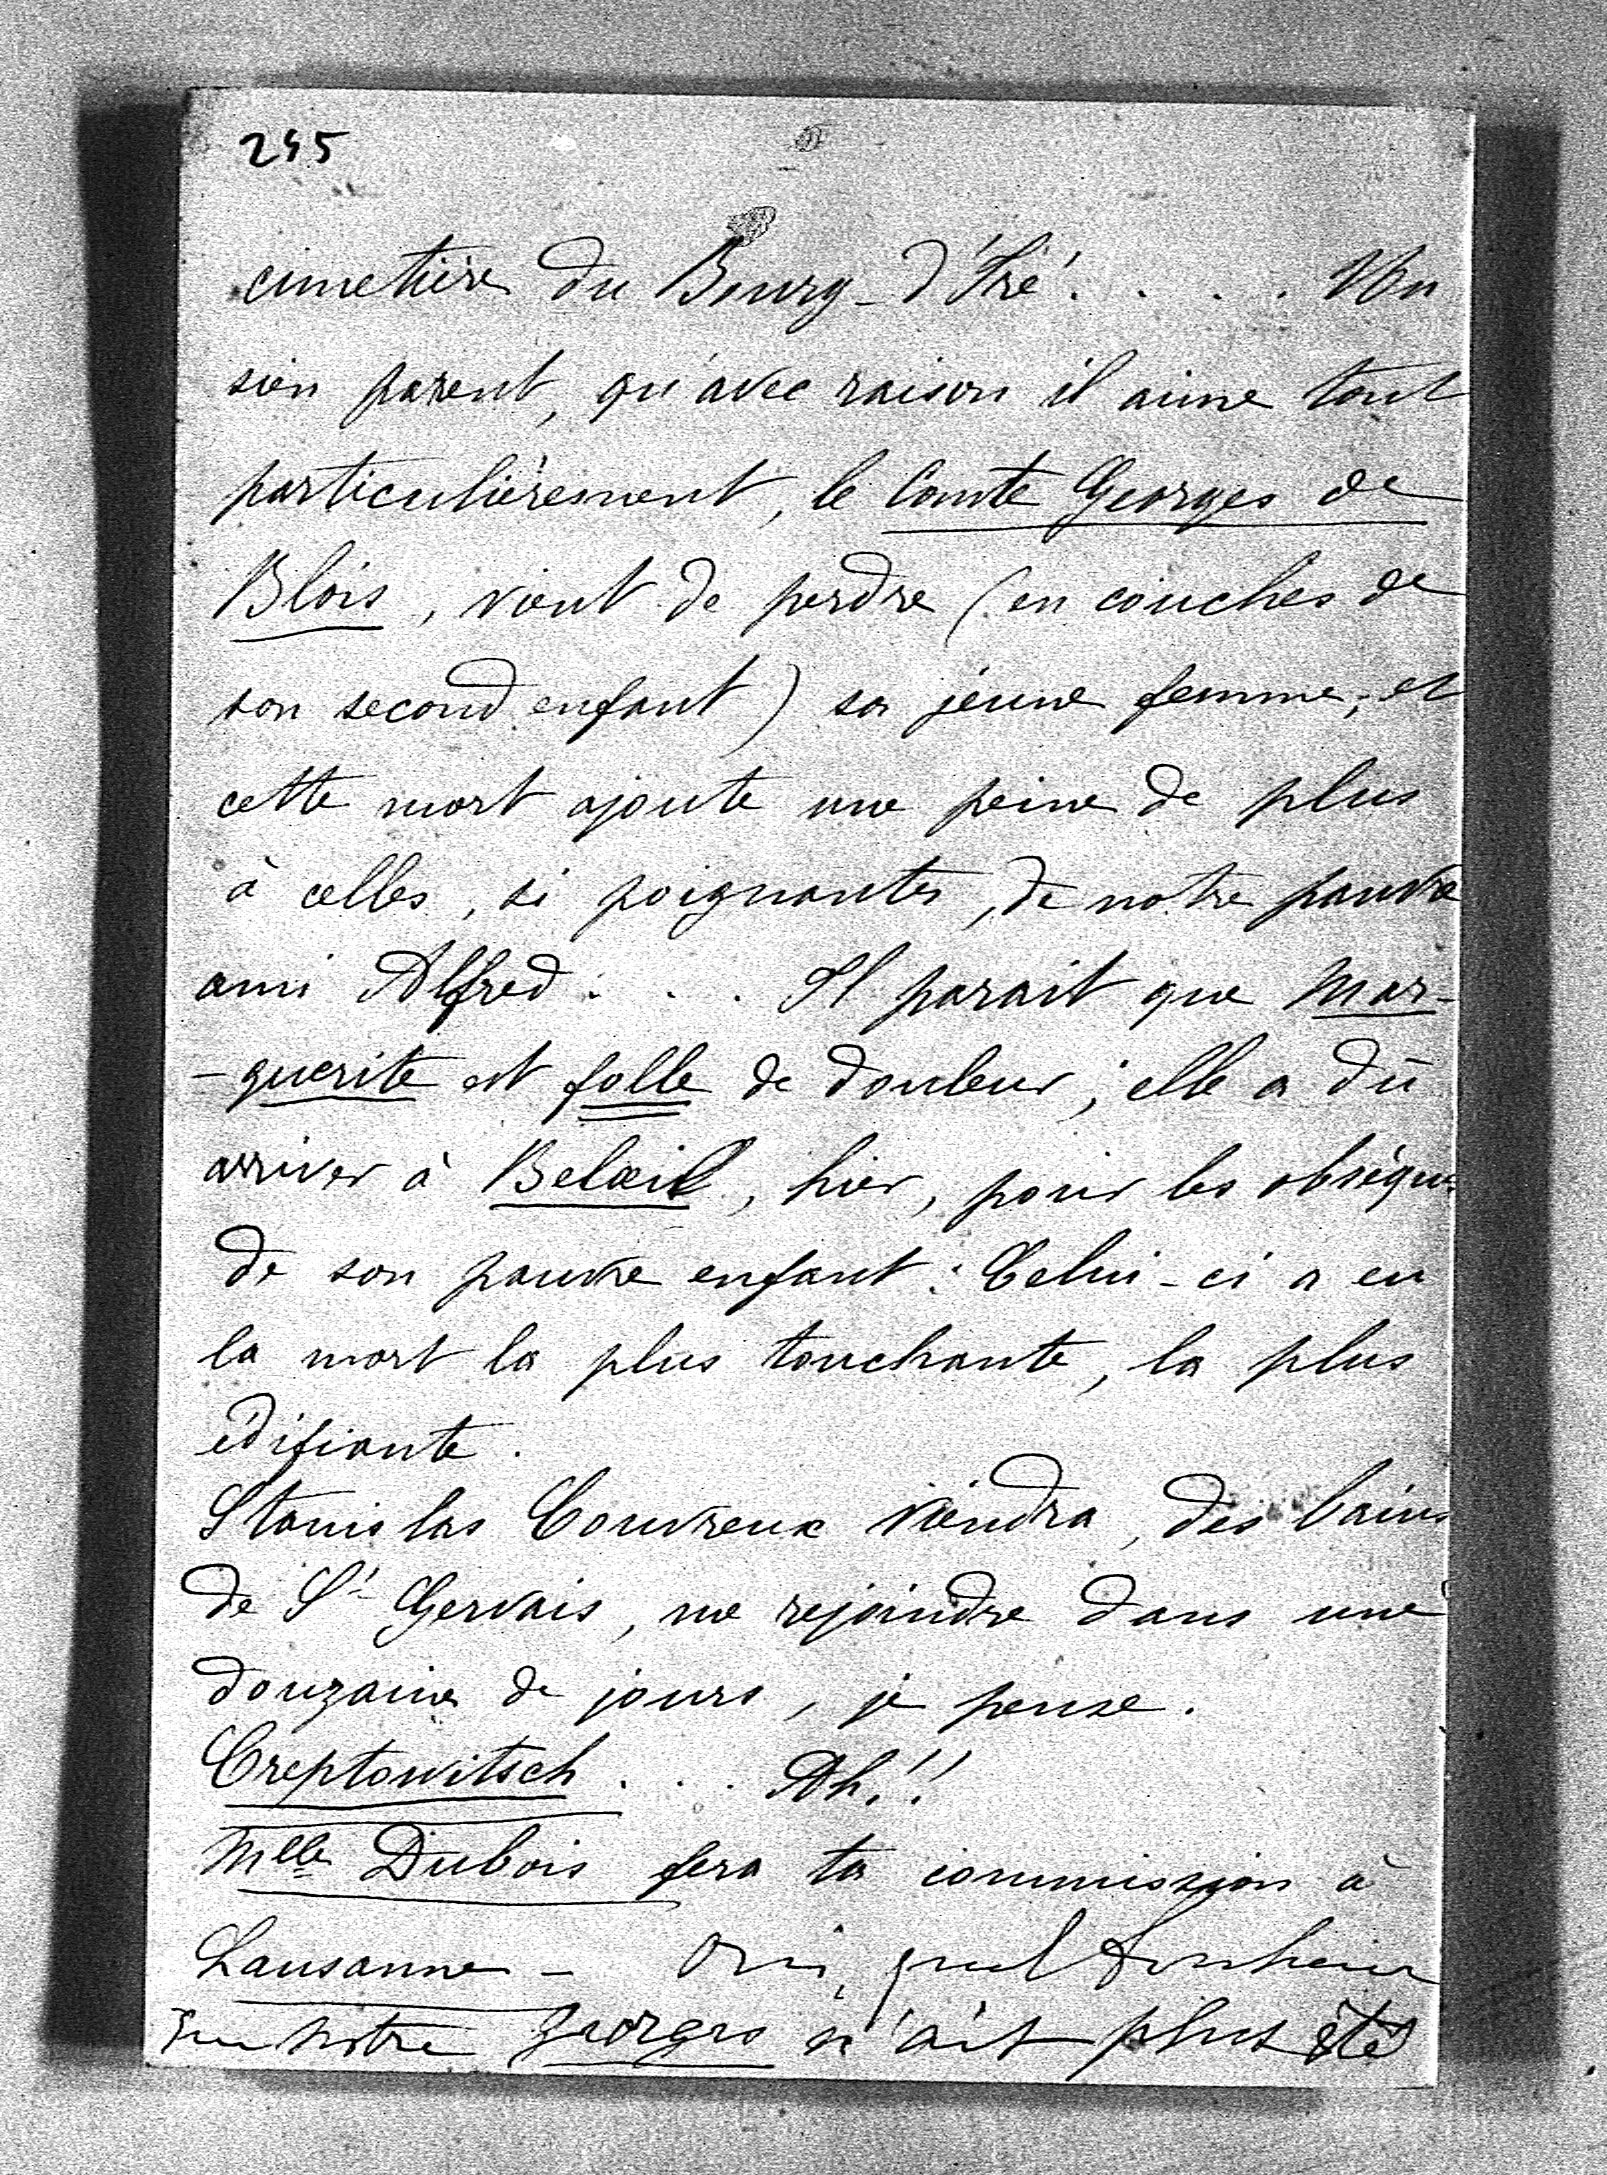 245
cimetière du Bourg-d'Iré. . . . Un
sien parent, qu'avec raison il aime tout
particulièrement, le Comte Georges de
Blois, vient de perdre (en couches de
son second enfant) sa jeune femme, et
cette mort ajoute une peine de plus
à celles, si poignantes, de notre pauvre
ami Alfred . . . Il parait que Mar-
-guerite est folle de douleur; elle a dû
arriver à Belœil, hier, pour les obsèques
de son pauvre enfant: Celui-ci a eu
la mort la plus touchante, la plus
édifiante.
Stanislas Couvreux viendra, des bains
de St Gervais, me rejoindre dans une
douzaine de jours, je pense.
Creptowitsch . . . Ah!!
Mlle Dubois fera ta commission à
Lausanne - Oui, quel bonheur
que notre Georges n'ait plus été